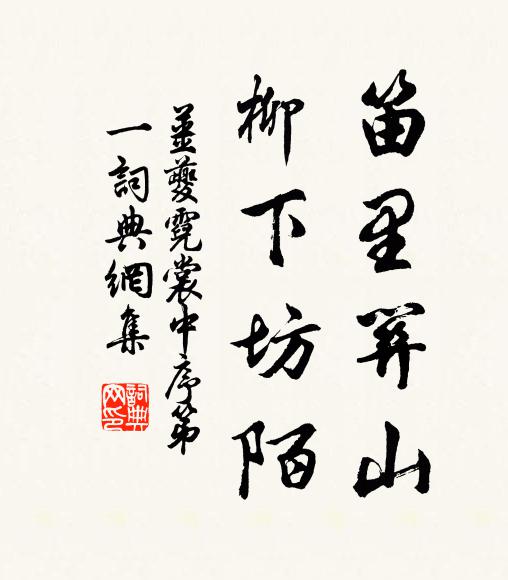 笛里關山
柳下坊陌
姜夔霓裳中序第
一詞典網集
詞典
网印